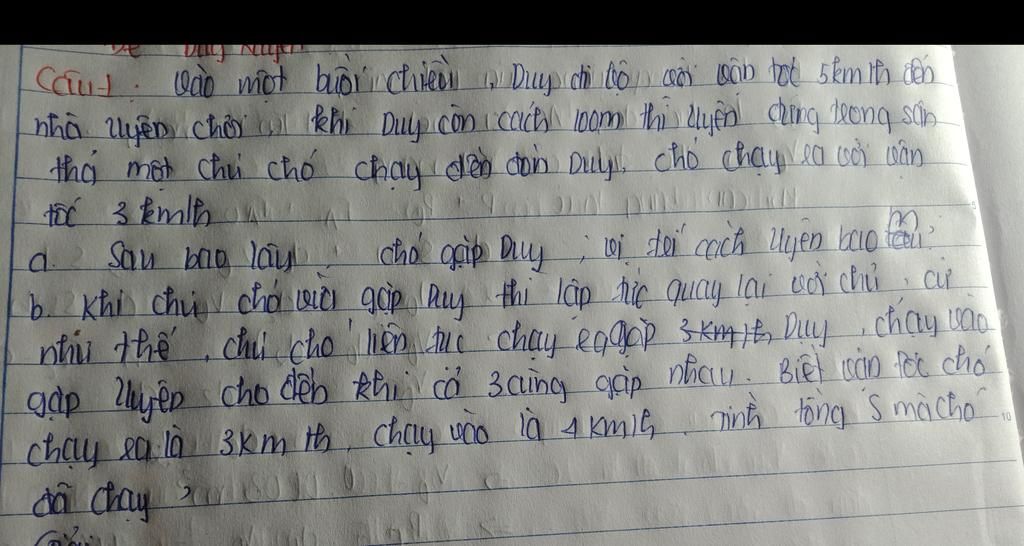 Câu 1: Vào một buổi chiều, Duy đi bộ với vận tốc 5km/h đến
nhà Uyên chơi, khi Duy còn cách 100m thì Uyên đứng trong sân
thả một chú chó chạy đến đón Duy, chó chạy ra với vận
tốc 3km/h
a. Sau bao lâu chó gặp Duy, vị trí cách Uyên bao m?
b. Khi chú chó vừa gặp Duy thì lập tức quay lại với chủ, cứ
như thế, chú chó liên tục chạy ra gặp Duy, chạy vào
gặp Uyên cho đến khi cả 3 cùng gặp nhau. Biết vận tốc chó
chạy ra là 3km/h, chạy vào là 4km/h. Tính tổng S mà chó
đã chạy?